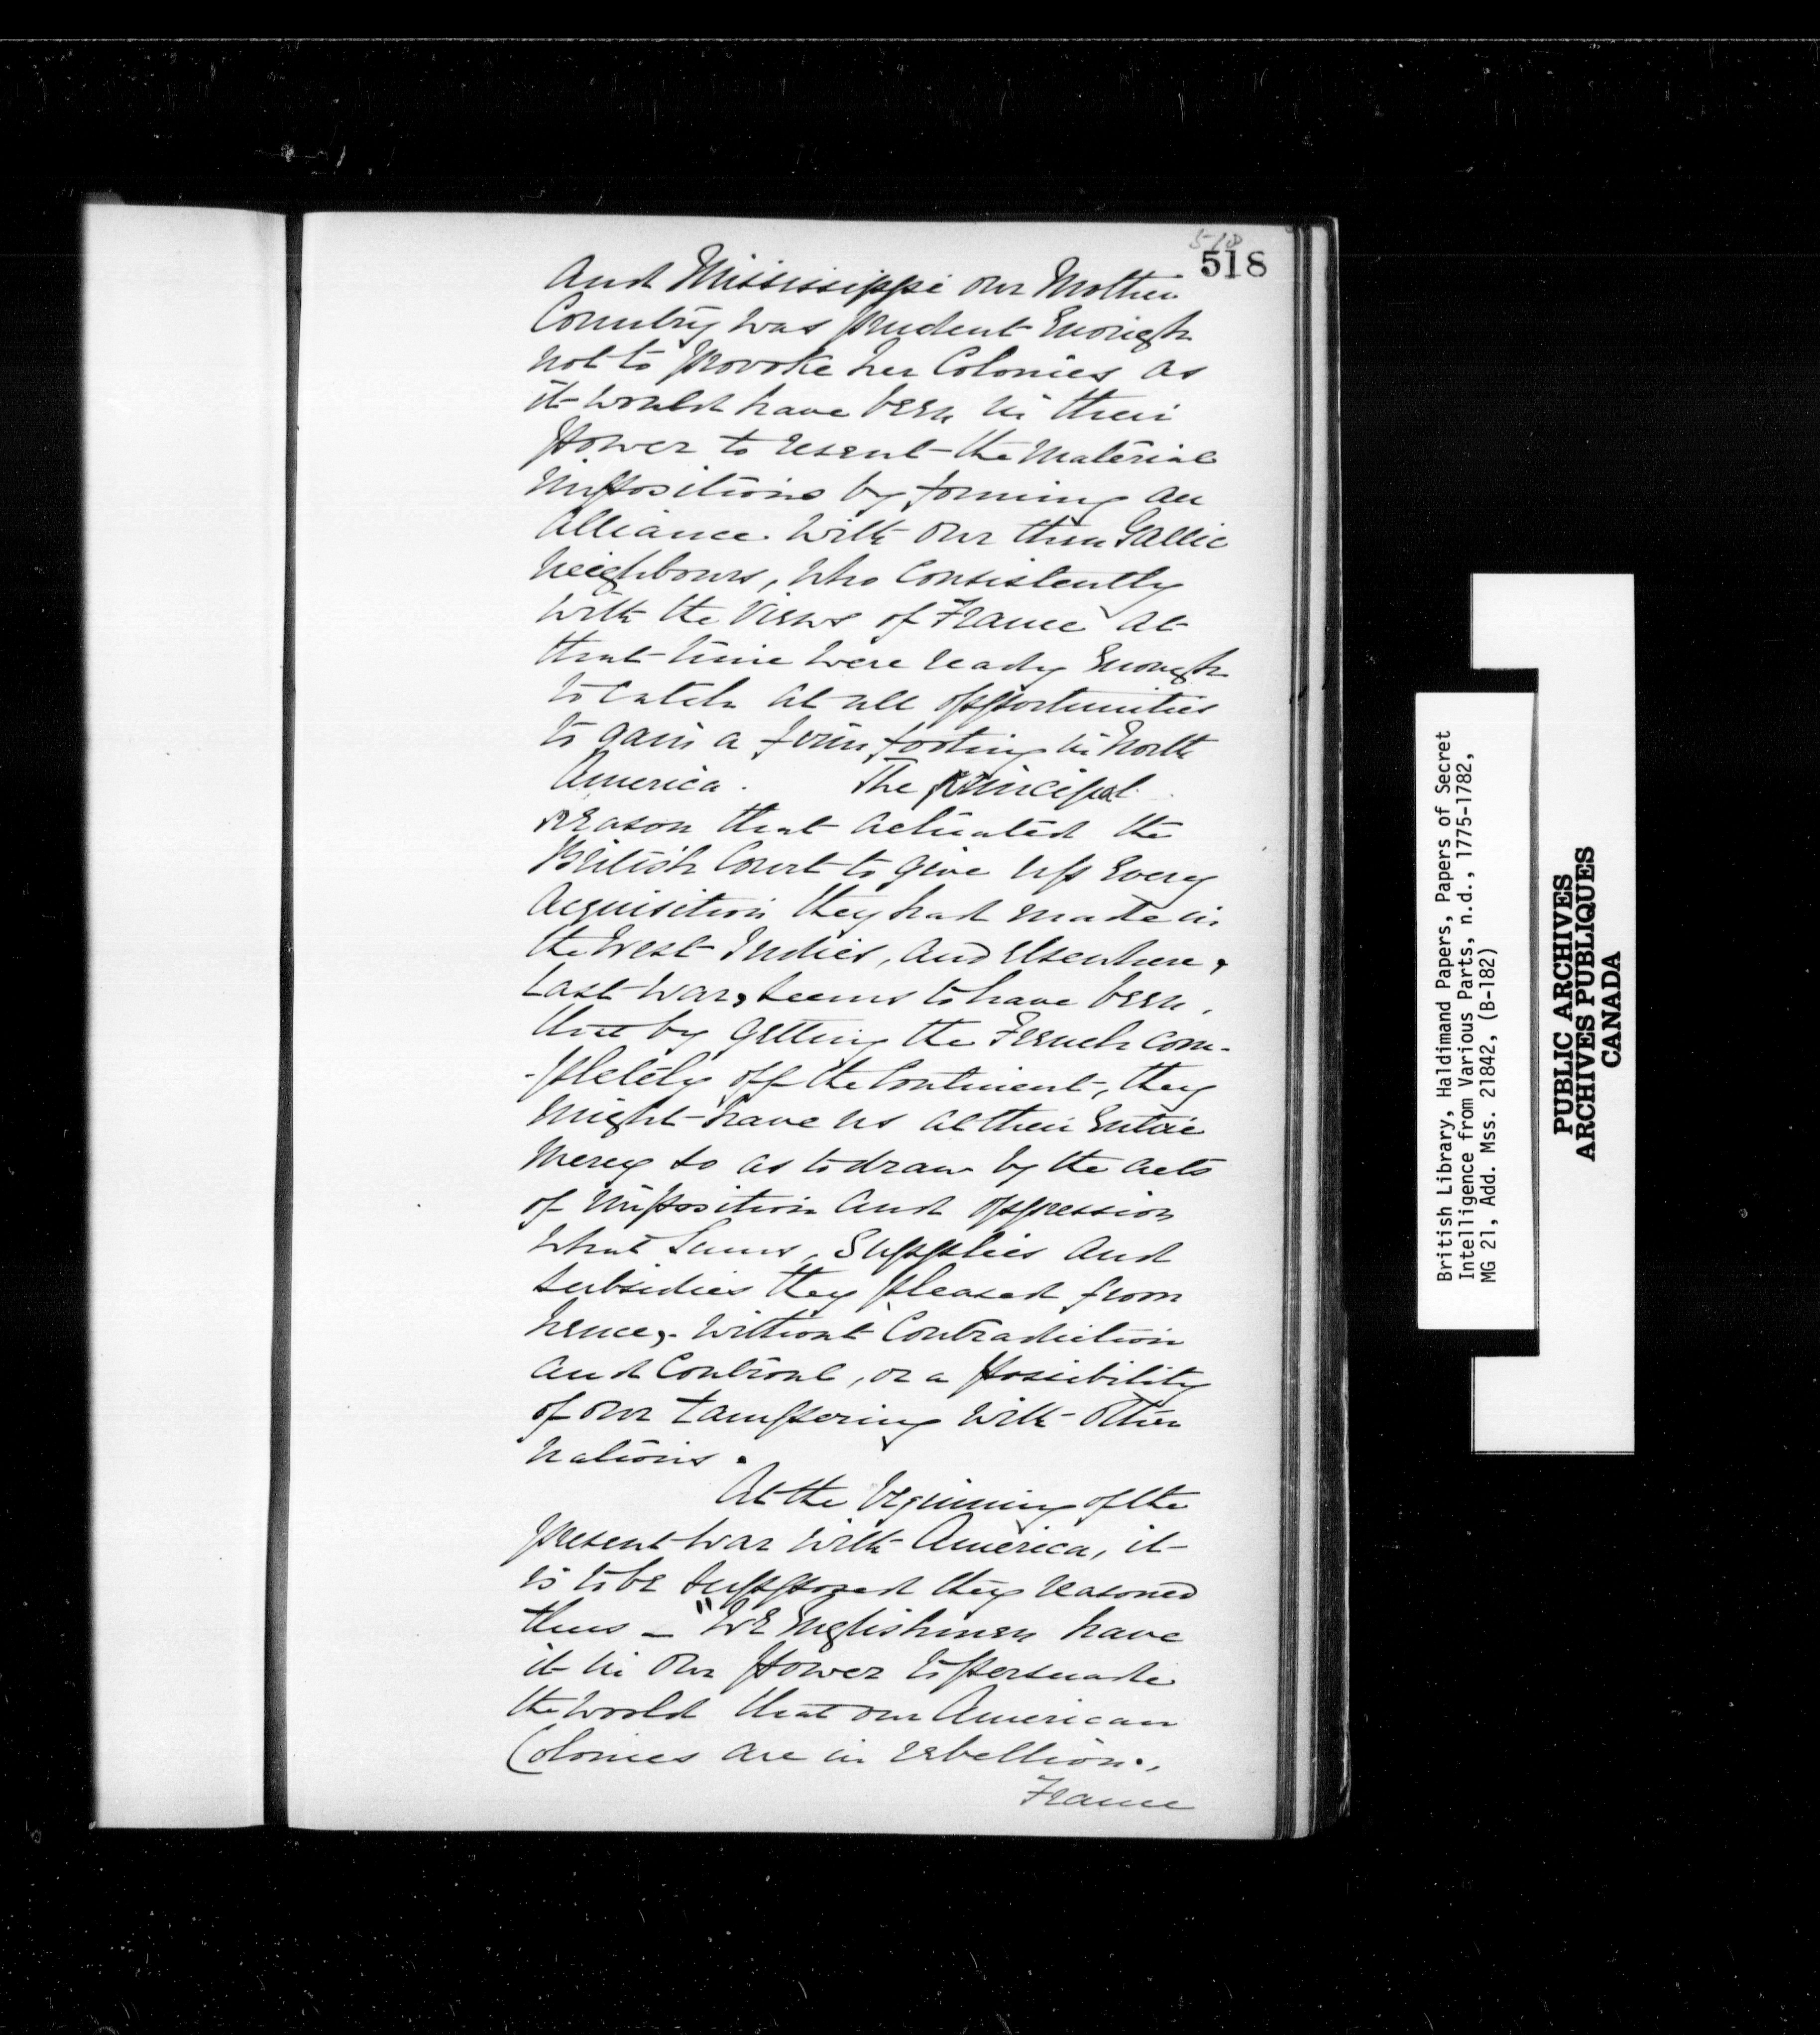 518
518
And Mississippi our Mother
Country was prudent Enough
not to provoke her Colonies as
it would have been in their
power to resent the material
impositions by forming an
Alliance with our then Gallic
Neighbours, who consistently
with the views of France at
that time were ready Enough
to catch at all opportunities
to gain a firm footing in North
America. The principal
reason that actuated the
British Court to give up Every
Acquisition they had made in
the West Indies, and Elsewhere,
Last War, seems to have been,
that by getting the French com-
-pletely off the Continent, they
might have us at their Entire
Mercy so as to draw by the acts
of imposition and oppression
what Sums, Supplies and
subsidies they pleased from
hence, without Contradiction
and Controul, or a possibility
of our tampering with other
nations.
At the beginning of the
present war with America, it
is to be supposed they reasoned
thus — "We Englishmen have
it in our power to persuade
the world that our American
Colonies are in rebellion.,
France
British Library, Haldimand Papers, Papers of Secret
Intelligence from Various Parts, n.d., 1775-1782,
MG 21, Add. Mss. 21842, (B-182)
PUBLIC ARCHIVES
ARCHIVES PUBLIQUES
CANADA